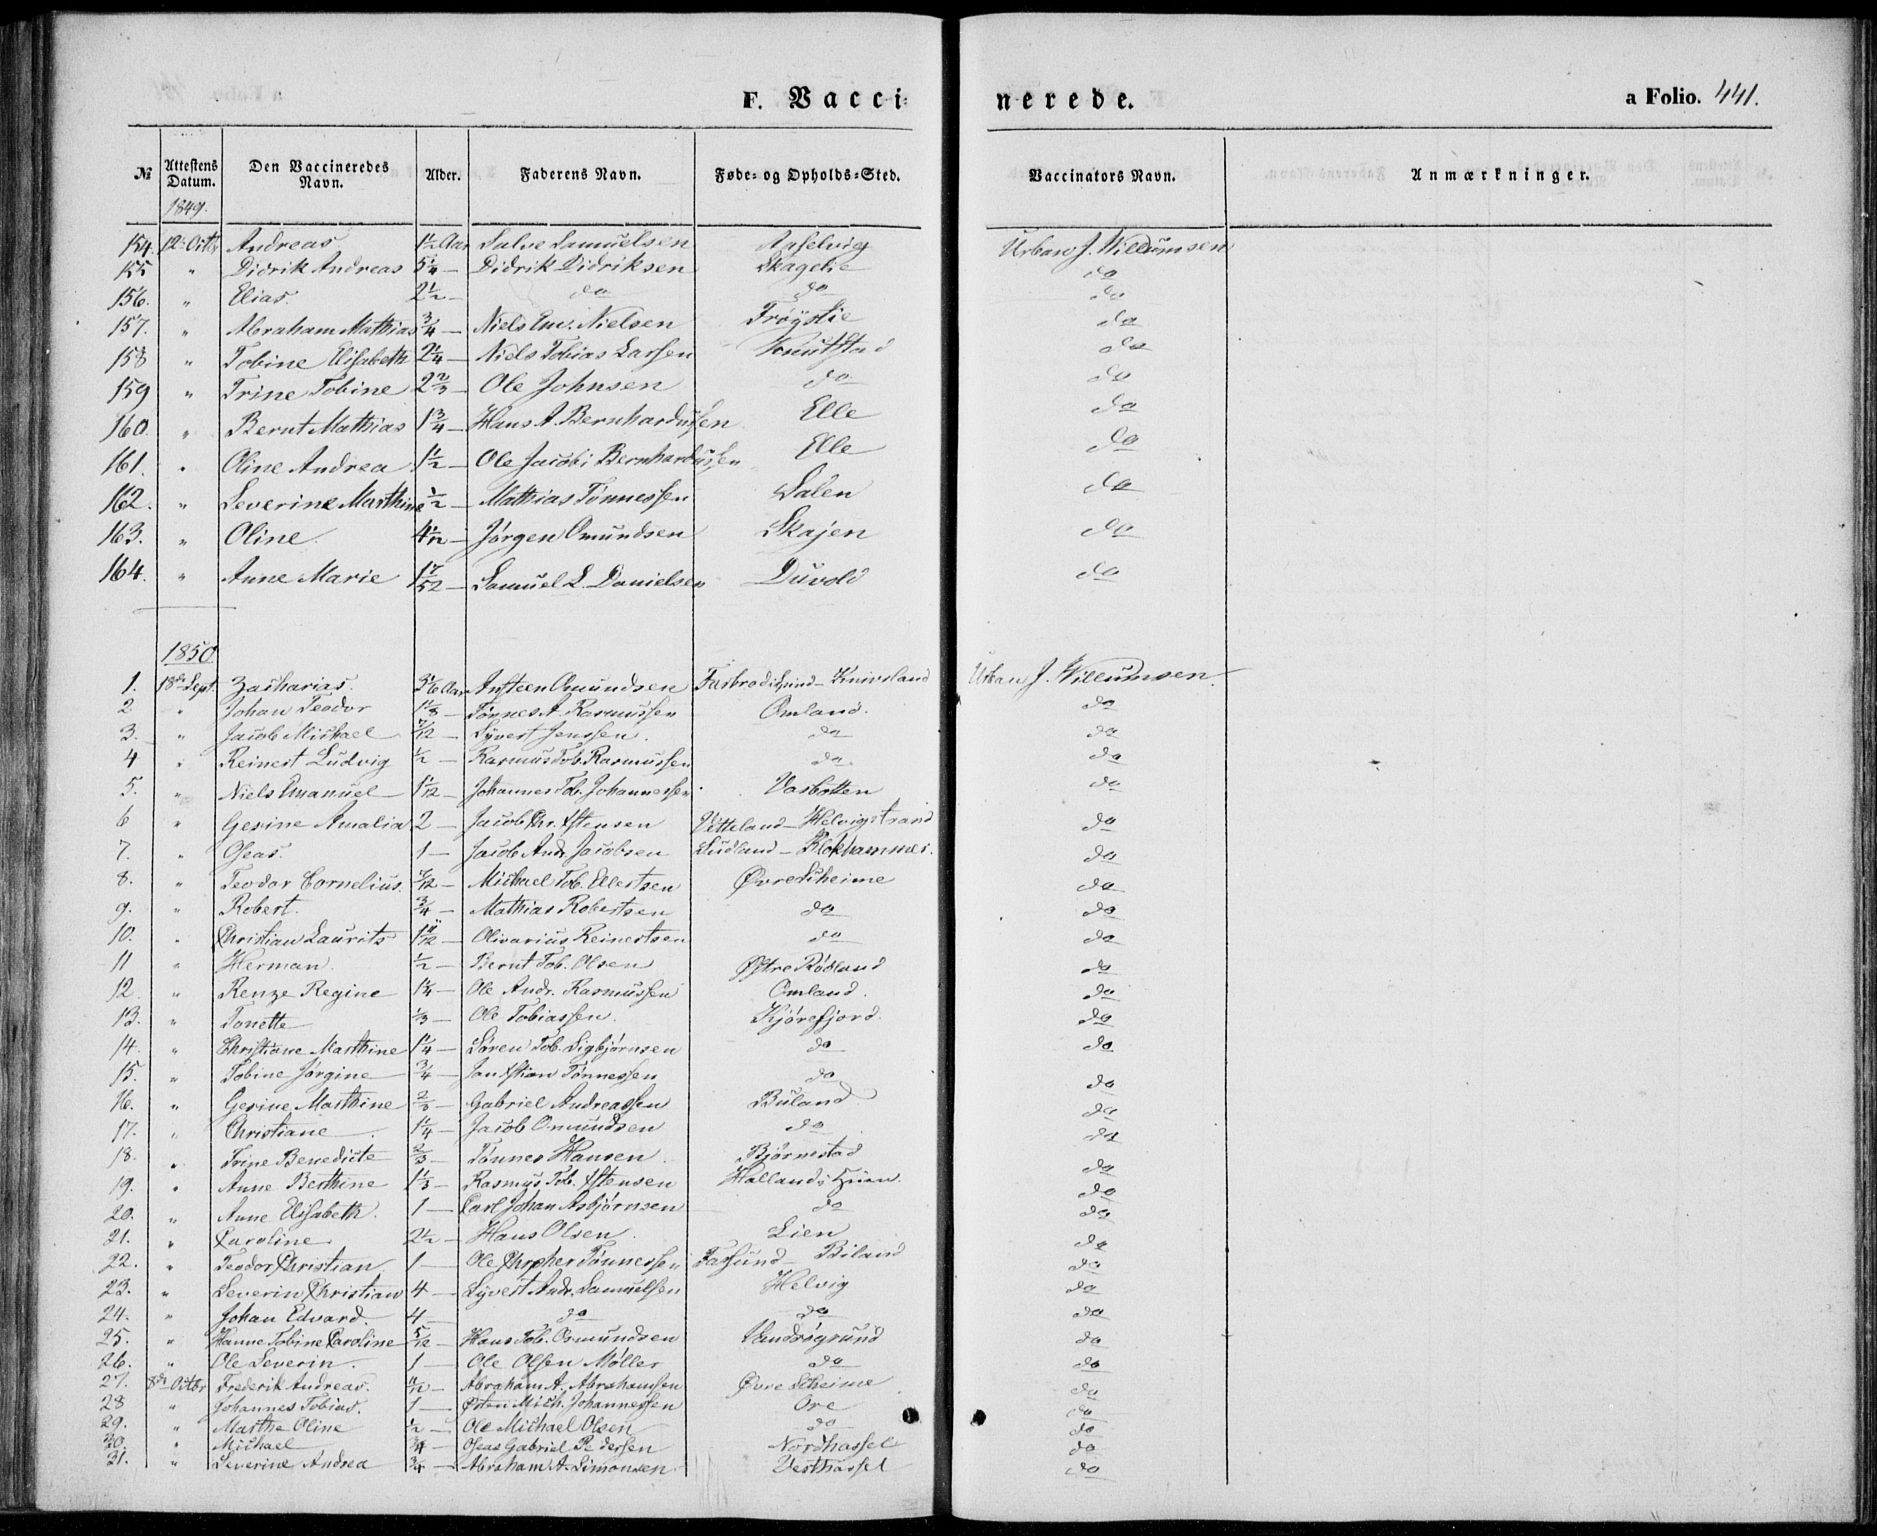 F. Vacci-nerede. a Folio. 441.
№ Attestens Datum. Den Vaccineredes Navn. Alder. Faderens Navn. Føde- og Opholds-Sted. Vaccinators Navn. Anmærkninger.
1849.
154. 12. Octb. Andreas 1 1/2 Aar Salve Samuelsen Urban J. Willumsen
155 " Didrik Andreas 5 1/4 — Didrik Didriksen Skagelie do
156. " Elias. 2 1/2 — do do do
157. " Abraham Mathias 3/4 — Niels Em. Nielsen Trøyslie do
158 " Tobine Elisabeth 2 1/4 — Niels Tobias Larsen Knutstad do
159 " Trine Tobine 2 2/3 — Ole Johnsen do do
160. " Bernt Mathias 1 3/4 — Hans A. Bernhardussen Elle do
161. " Oline Andrea 1 1/2 — Ole Jacobi Bernhardussen Elle do
162. " Severine Marthine 1/2 — Mathias Tønnessen Dalen do
163. " Oline. — Jørgen Omundsen Skajen do
164. " Anne Marie 1 7/52 — Samuel L. Danielsen Duvold do
1850
1. 18de Sept. Zacharias. Aar Omundsen Knivsland Urban J. Willumsen.
2. " Johan Teodor 1 1/8 — Tønnes A. Rasmussen Omland. do
3. " Jacob Michael 7/12 — Syvert Jenssen. do do
4 " Reinert Ludvig 1/2 — Rasmus Tob. Rasmussen do. do
5. " Niels Emanuel 1 1/12 — Johannes Tob. Johannessen. Vasbotten do
6 " Gesine Amalia 2 — Jacob Chr. Østensen Vitteland — Helvigstrand do
7. " Oseas. 1 — Jacob Andr. Jacobsen Sudland — Blokhammer. do
8. " Teodor Cornelius. — Michael Tob. Ellertsen Øvre Skeime do
9. " Robert. 3/4 — Mathias Robertsen do do
10. " Christian Laurits — Olivarius Reinertsen do do
11 " Herman. 1/2 — Bernt Tob. Olsen Østre Rødland do
12 " Renze Regine 1 1/4 — Ole Andr. Rasmussen Omland. do
13. " Tonette 1/3 — Ole Tobiassen. Kjørefjord. do
14. " Christiane Marthine 1 1/4 — Søren Tob. Sigbjørnsen do do
15. " Tobine Jørgine 3/4 — Tønnessen do do
16. " Gesine Marthine 2/3 — Gabriel Andreassen Buland do
17. " Christiane 1 1/4 — Jacob Omundsen do do
18. " Trine Benedicte 2/3 — Tønnes Hansen. Bjørnestad do
19. " Anne Berthine 1 1/3 — Rasmus Tob. Østensen do
20. " Anne Elisabeth. 1 — Carl Johan Asbjørnsen do do
21. " Caroline 2 1/2 — Hans Olsen. Lien do
22. " Teodor Christian. 1 — Ole Chrpher Tønnessen Farsund — Biland do
23. " Severin Christian 4 — Syvert Andr. Samuelsen Helvig do
24. " Johan Edvard. 4 — do do do
25. " Hanne Tobine Caroline 5/12 — Hans Tob. Osmundsen Vandrøgrund do
26. " Ole Severin. 1 — Ole Olsen Møller do do
27. 8de Octbr Frederik Andreas. — Abraham A. Abrahamsen Øvre Skeime do
28 " Johannes Tobias. 1 — Østen Mich. Johannessen Ore do
29. " Marthe Oline 1/2 — Ole Michael Olsen do do
30. " Michael 3/4 — Oseas Gabriel Pedersen Nordhassel do
31. " Severine Andrea 3/4 — Abraham A. Simonsen Vesthassel do